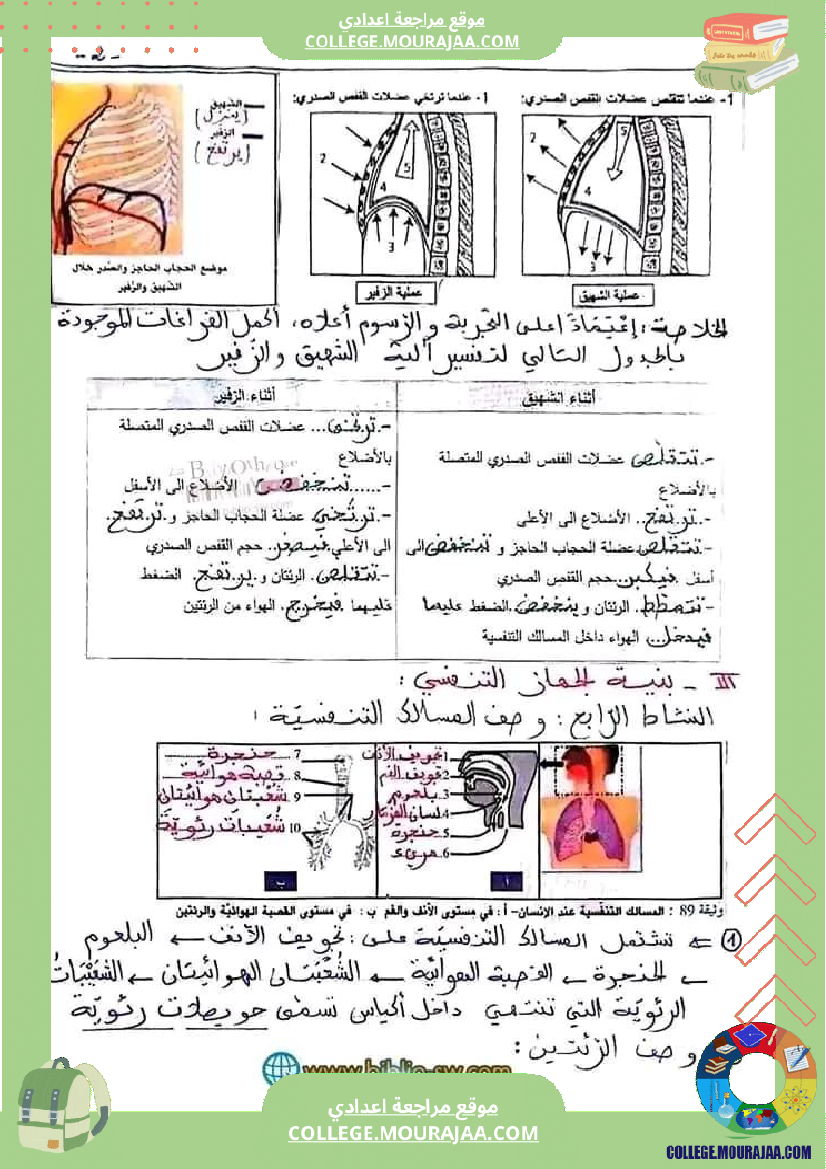 موقع مراجعة اعدادي
COLLEGE.MOURAJAA.COM
الشهيق
(ينزل)
الزفير
(يرتفع)
موضع الحجاب الحاجز والصدر خلال
الشهيق والزفير
1- عندما تتقلص عضلات القفص الصدري:
2
5
4
3
عملية الشهيق
1- عندما ترتخي عضلات القفص الصدري:
2
5
4
3
عملية الزفير
الخلاصة: إعتمادا على التجربة والرسوم أعلاه، أكمل الفراغات الموجودة
بالجدول التالي لتفسير آلية الشهيق والزفير
أثناء الشهيق
-.تتقلص عضلات القفص الصدري المتصلة
بالأضلاع
-.ترتفع.. الأضلاع الى الأعلى
-.تتقلص عضلة الحجاب الحاجز و تنخفض الى
أسفل فيكبر.حجم القفص الصدري
-تتمطط. الرئتان و ينخفض.الضغط عليهما
فيدخل... الهواء داخل المسالك التنفسية
أثناء الزفير
-.ترتخي... عضلات القفص الصدري المتصلة
بالأضلاع
-......تنخفض الأضلاع الى الأسفل
-.ترتخي. عضلة الحجاب الحاجز و ترتفع.
الى الأعلى.فيصغر. حجم القفص الصدري
-.تتقلص. الرئتان و.يرتفع. الضغط
عليهما .فيخرج. الهواء من الرئتين
III - بنية الجهاز التنفسي:
النشاط الرابع: وصف المسالك التنفسية:
1 تجويف الأنف
2 تجويف الفم
3 بلعوم
4 لسان المزمار
5 حنجرة
6 مريء
أ
7 حنجرة
8 قصبة هوائية
9 شعبتان هوائيتان
10 شعيبات رئوية
ب
وثيقة 89 : المسالك التنفسية عند الإنسان- أ : في مستوى الأنف والفم ب : في مستوى القصبة الهوائية والرئتين
① ⇐ تشتمل المسالك التنفسية على: تجويف الأنف ← البلعوم
← الحنجرة ← القصبة الهوائية ← الشعبتان الهوائيتان ← الشعيبات
الرئوية التي تنتهي داخل أكياس تسمى حويصلات رئوية
وصف الرئتين:
موقع مراجعة اعدادي
COLLEGE.MOURAJAA.COM
COLLEGE.MOURAJAA.COM